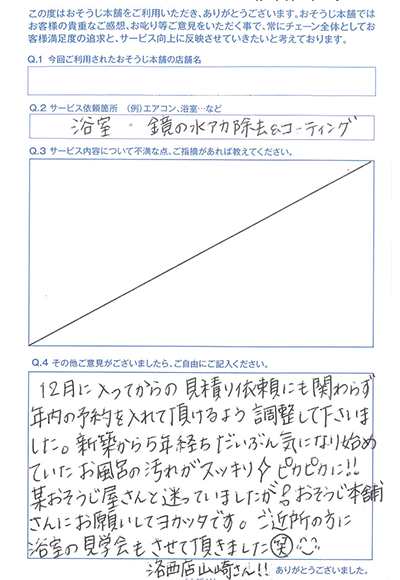 この度はおそうじ本舗をご利用いただき、ありがとうございます。おそうじ本舗では
お客様の貴重なご感想、お叱り等ご意見をいただく事で、常にチェーン全体としてお
客様満足度の追求と、サービス向上に反映させていきたいと考えております。
Q.1 今回ご利用されたおそうじ本舗の店舗名
Q.2 サービス依頼箇所 (例)エアコン、浴室…など
浴室・鏡の水アカ除去&コーティング
Q.3 サービス内容について不満な点、ご指摘があれば教えてください。
Q.4 その他ご意見がございましたら、ご自由にご記入ください。
12月に入ってからの見積り依頼にも関わらず
年内の予約を入れて頂けるよう調整して下さいま
した。新築から5年経ちだいぶん気になり始め
ていたお風呂の汚れがスッキリ ピカピカに!!
某おそうじ屋さんと迷っていましたが おそうじ本舗
さんにお願いしてヨカッタです。ご近所の方に
浴室の見学会もさせて頂きました(笑)
洛西店山崎さん!! ありがとうございました。